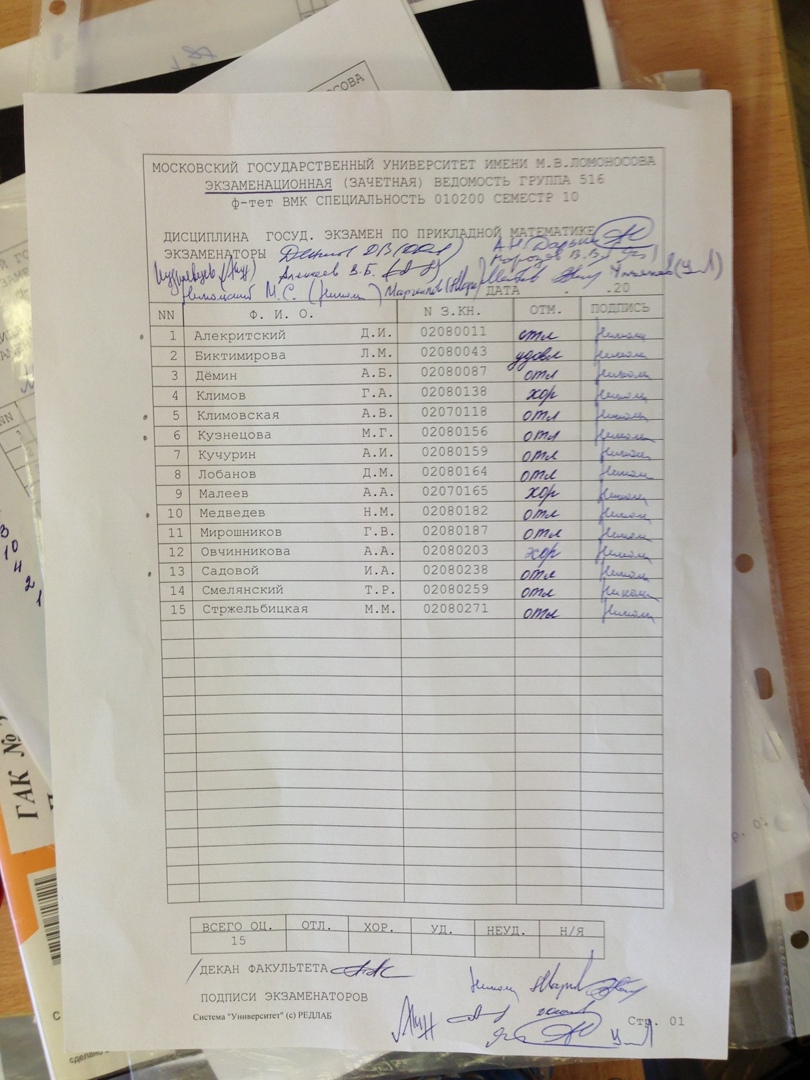 МОСКОВСКИЙ ГОСУДАРСТВЕННЫЙ УНИВЕРСИТЕТ ИМЕНИ М.В.ЛОМОНОСОВА
ЭКЗАМЕНАЦИОННАЯ (ЗАЧЕТНАЯ) ВЕДОМОСТЬ ГРУППА 516
ф-тет ВМК СПЕЦИАЛЬНОСТЬ 010200 СЕМЕСТР 10
ДИСЦИПЛИНА ГОСУД. ЭКЗАМЕН ПО ПРИКЛАДНОЙ МАТЕМАТИКЕ
ЭКЗАМЕНАТОРЫ
Алексеев В.Б.
М.С.
ДАТА . .20
NN Ф. И. О. N З.КН. ОТМ. ПОДПИСЬ
1 Алекритский Д.И. 02080011 отл
2 Биктимирова Л.М. 02080043 удовл
3 Дёмин А.Б. 02080087 отл
4 Климов Г.А. 02080138 хор
5 Климовская А.В. 02070118 отл
6 Кузнецова М.Г. 02080156 отл
7 Кучурин А.И. 02080159 отл
8 Лобанов Д.М. 02080164 отл
9 Малеев А.А. 02070165 хор
10 Медведев Н.М. 02080182 отл
11 Мирошников Г.В. 02080187 отл
12 Овчинникова А.А. 02080203 хор
13 Садовой И.А. 02080238 отл
14 Смелянский Т.Р. 02080259 отл
15 Стржельбицкая М.М. 02080271 отл
ВСЕГО ОЦ. ОТЛ. ХОР. УД. НЕУД. Н/Я
15
/ДЕКАН ФАКУЛЬТЕТА
ПОДПИСИ ЭКЗАМЕНАТОРОВ
Система "Университет" (c) РЕДЛАБ
Стр. 01
ГАК №